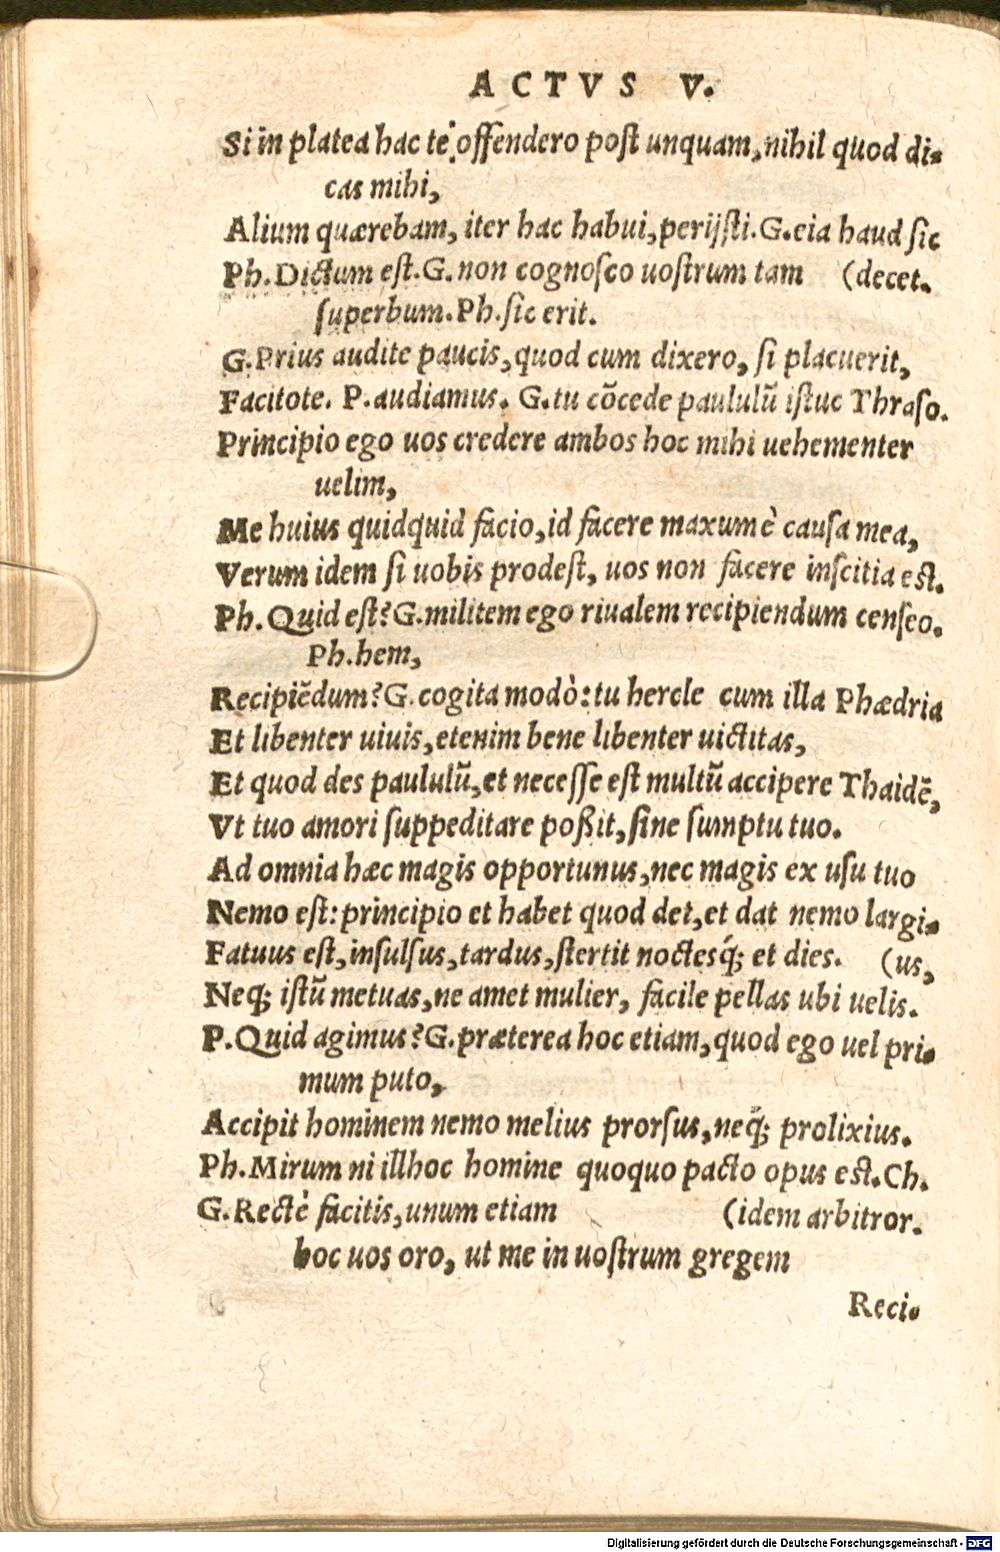 ACTVS V.
Si in platea hac te offendero post unquam, nihil quod di-
cas mihi,
Alium quærebam, iter hac habui, perijsti. G. eia haud sic
Ph. Dictum est. G. non cognosco uostrum tam (decet.
superbum. Ph. sic erit.
G. Prius audite paucis, quod cum dixero, si placuerit,
Facitote. P. audiamus. G. tu cõcede paululũ istuc Thraso.
Principio ego uos credere ambos hoc mihi uehementer
uelim,
Me huius quidquid facio, id facere maxumè causa mea,
Verum idem si uobis prodest, uos non facere inscitia est.
Ph. Quid est? G. militem ego riualem recipiendum censeo.
Ph. hem,
Recipiẽdum? G. cogita modò: tu hercle cum illa Phædria
Et libenter uiuis, etenim bene libenter uictitas,
Et quod des paululũ, et necesse est multũ accipere Thaidẽ,
Vt tuo amori suppeditare poßit, sine sumptu tuo.
Ad omnia hæc magis opportunus, nec magis ex usu tuo
Nemo est: principio et habet quod det, et dat nemo largi-
Fatuus est, insulsus, tardus, stertit noctesq́; et dies. (us,
Neq; istũ metuas, ne amet mulier, facile pellas ubi uelis.
P. Quid agimus? G. præterea hoc etiam, quod ego uel pri-
mum puto,
Accipit hominem nemo melius prorsus, neq́; prolixius.
Ph. Mirum ni illhoc homine quoquo pacto opus est. Ch.
G. Rectè facitis, unum etiam (idem arbitror.
hoc uos oro, ut me in uostrum gregem
Reci-
Digitalisierung gefördert durch die Deutsche Forschungsgemeinschaft - DFG